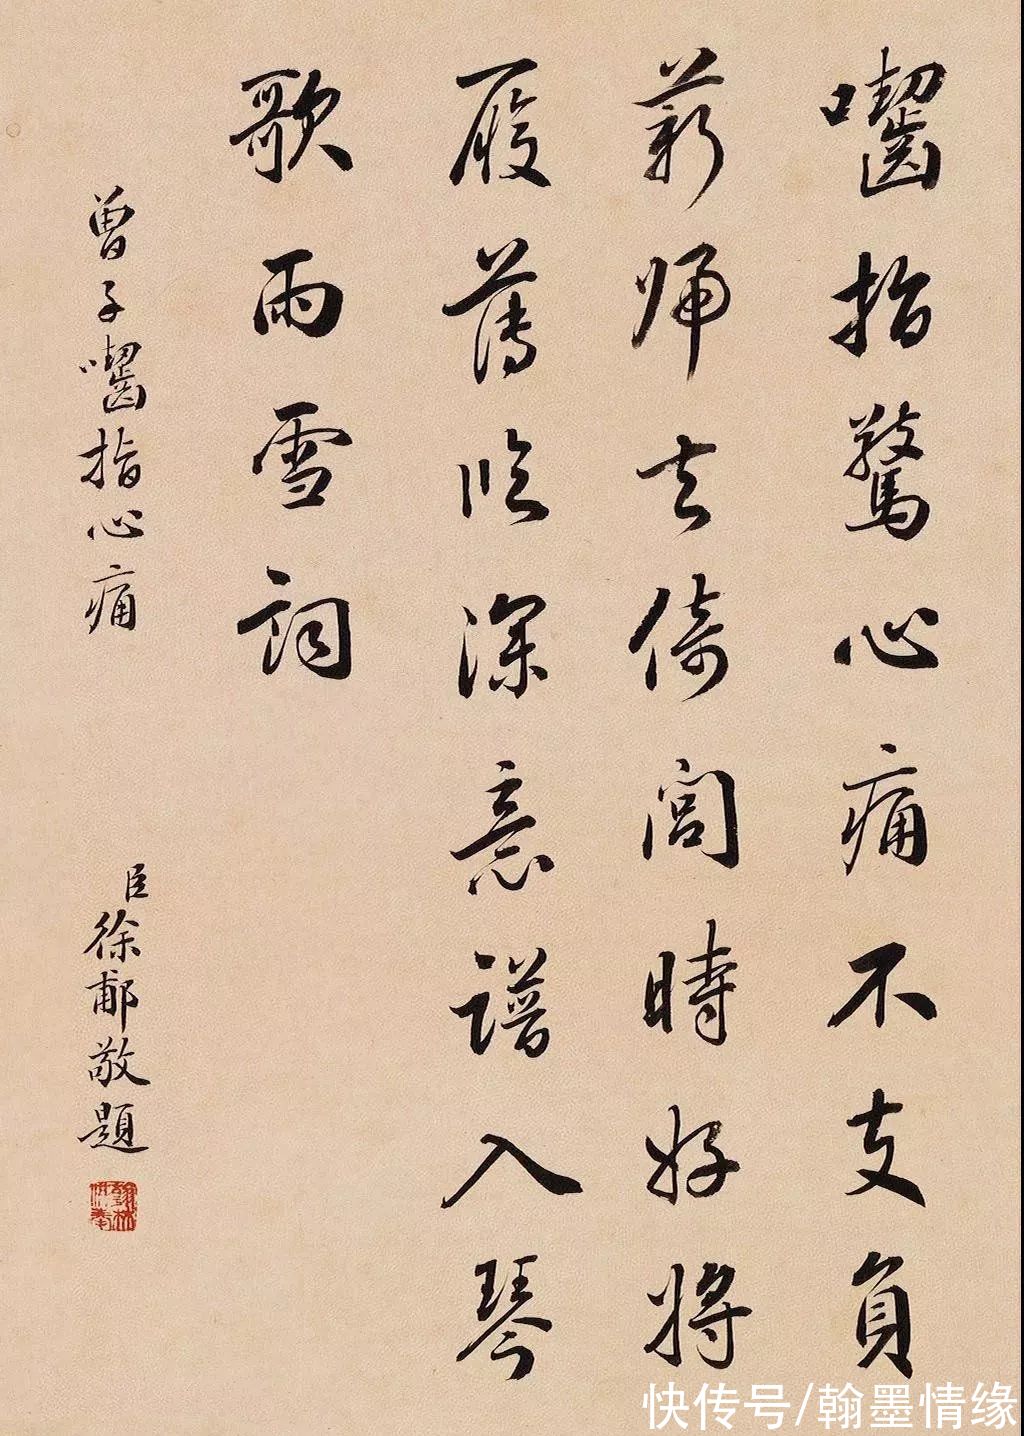 囓指驚心痛不支負
薪歸去倚閭時好將
履薄臨深意譜入琴
歌雨雪詞
曾子囓指心痛
臣徐郙敬題
翰林供奉
快传号/翰墨情缘